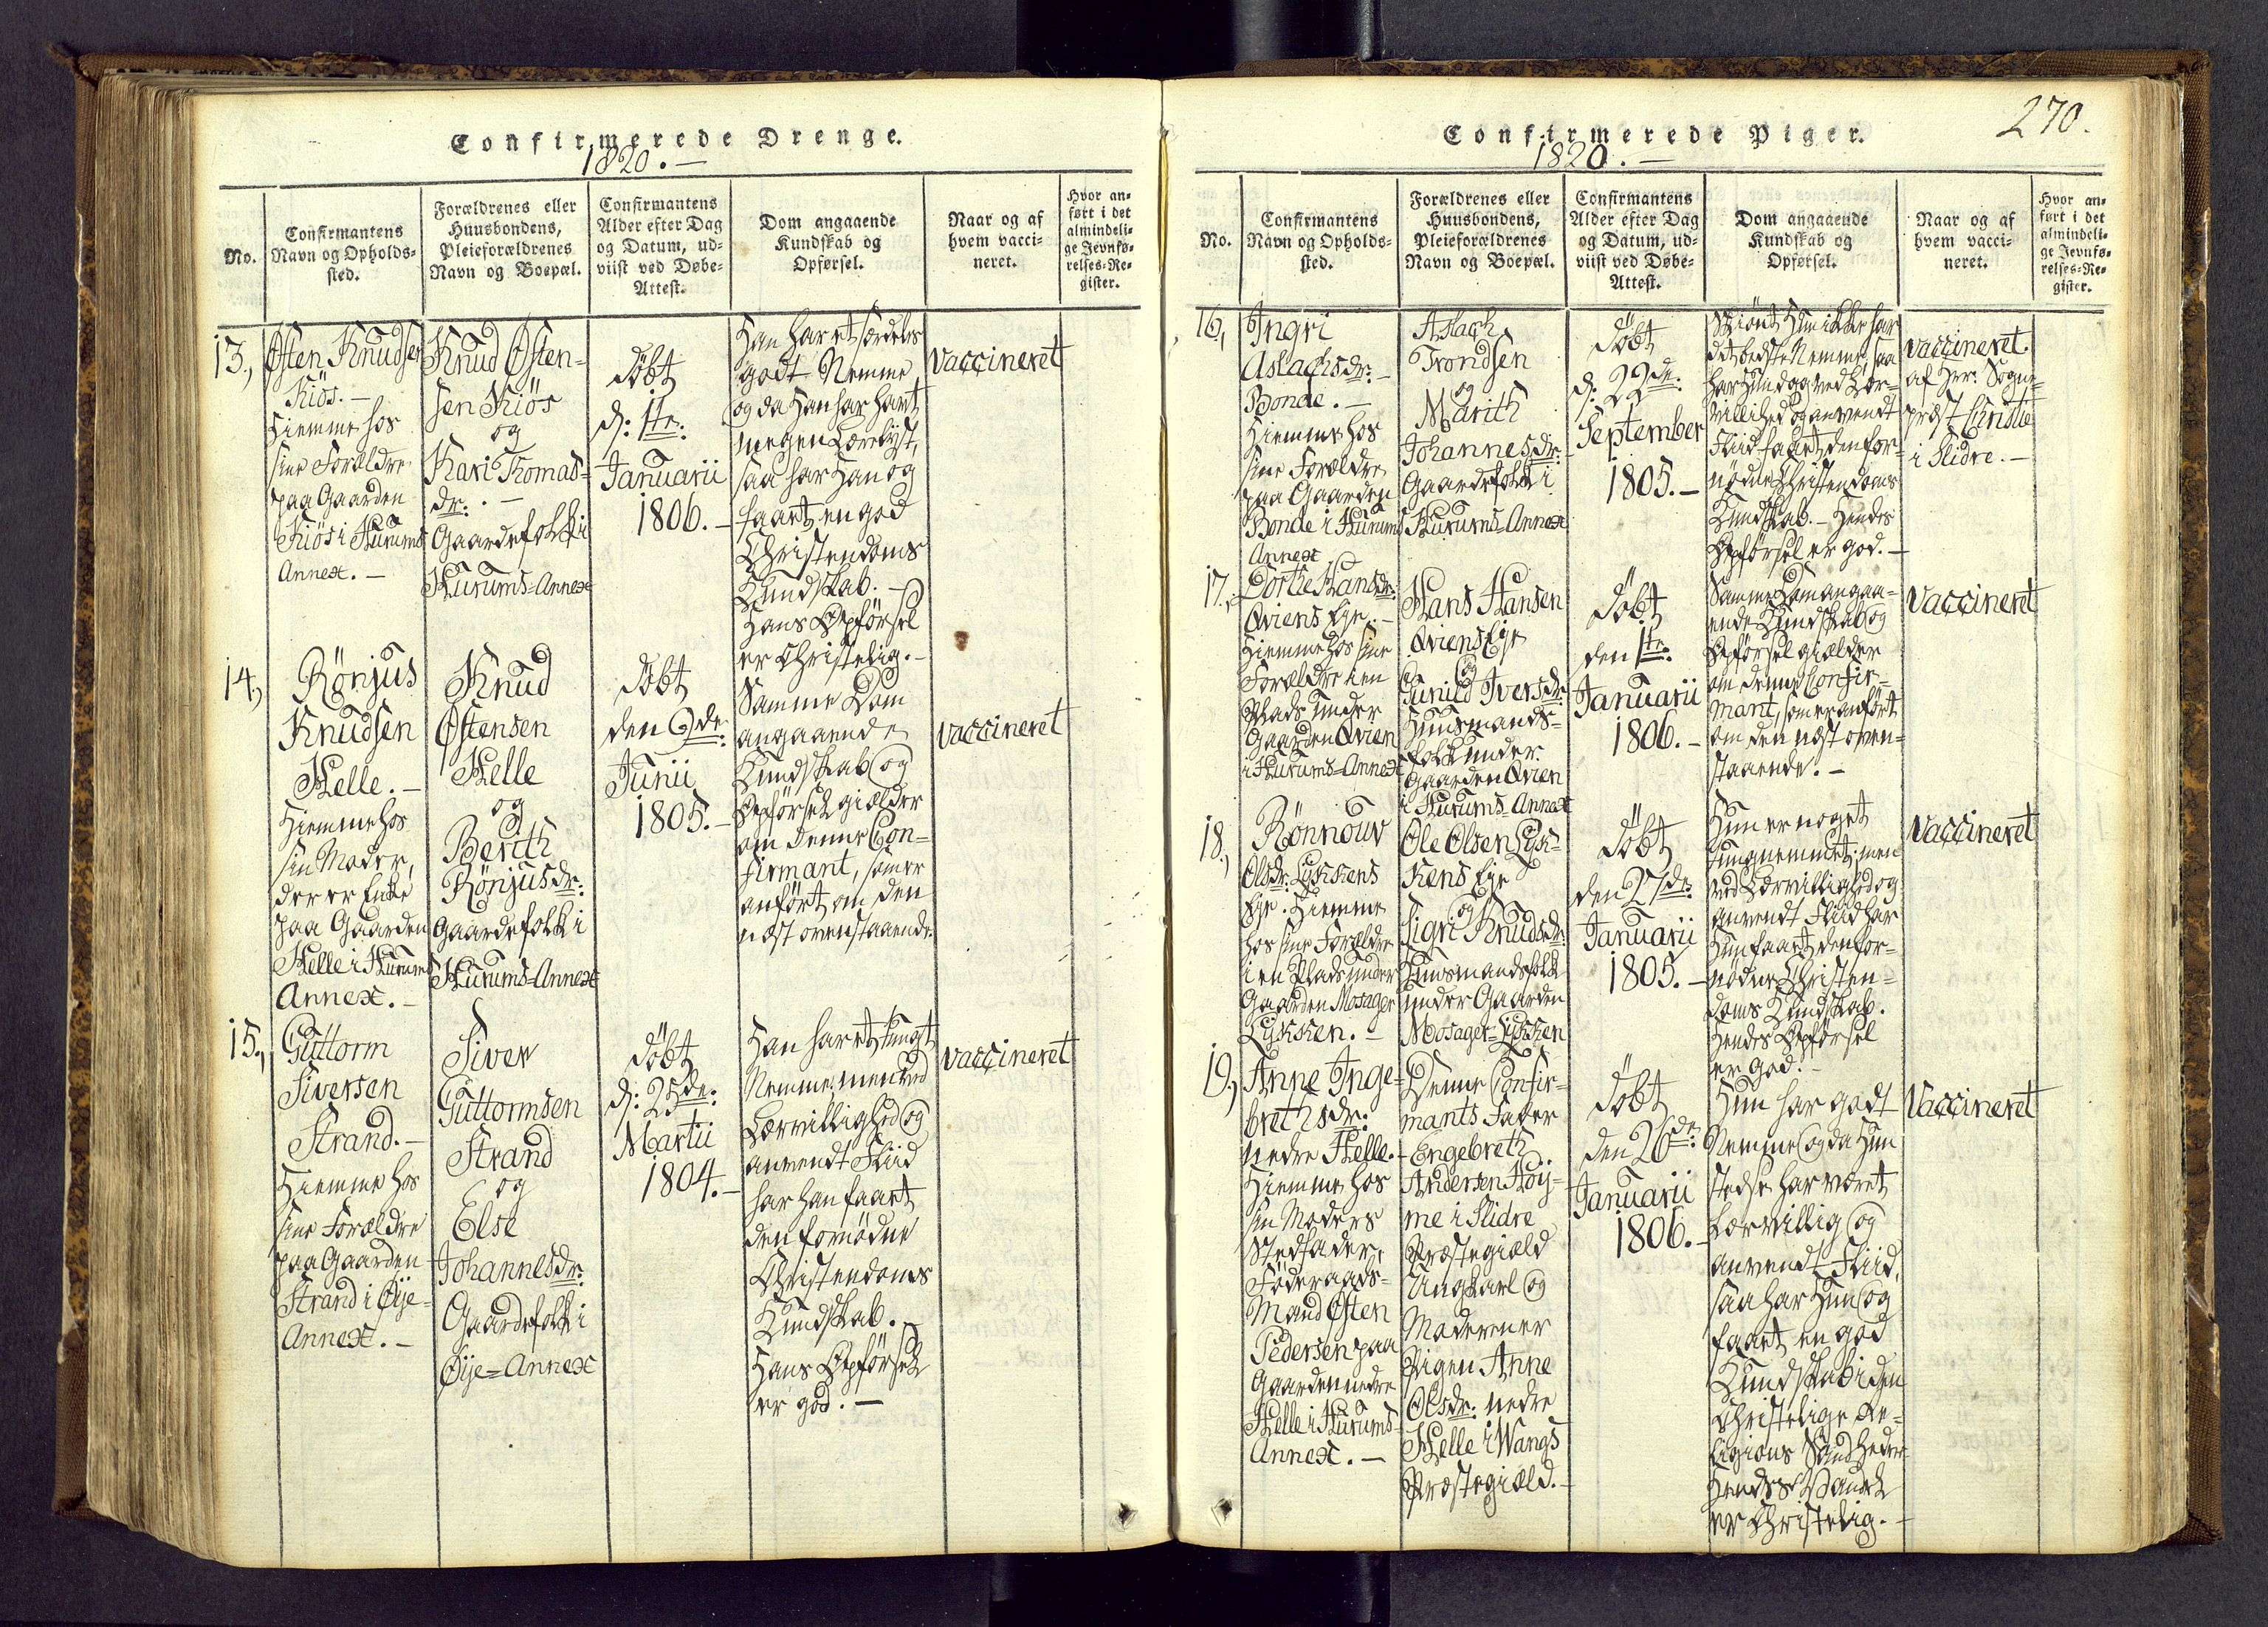 Confirmerede Drenge.
1820. —
No.
Confirmantens
Navn og Opholds-
sted.
Forældrenes eller
Huusbondens,
Pleieforældrenes
Navn og Boepæl.
Confirmantens
Alder efter Dag
og Datum, ud-
viist ved Døbe-
Attest.
Dom angaaende
Kundskab og
Opførsel.
Naar og af
hvem vacci-
neret.
Hvor an-
ført i det
almindeli-
ge Jevnfø-
relses-Re-
gister.
13.,
Østen Knudsen
Kiös. —
Hiemme hos
sine Forældre
paa Gaarden
Kiös i Hurums
Annex. —
Knud Østen-
sen Kiös
og
Kari Thomas-
dr: . —
Gaardefolk i
Hurums=Annex
döbt
d: 1te:
Januarii
1806. —
Han har et særdeles
godt Nemme
og da Han har havt
megen Lærelyst,
saa har Han og
faaet en god
Christendoms
Kundskab. —
Hans Opførsel
er Christelig. —
Vaccineret
14.,
Rönjus
Knudsen
Helle. —
Hiemme hos
sin Moder,
der er Enke
paa Gaarden
Helle i Hurums
Annex. —
Knud
Østensen
Helle
og
Berith
Rönjusdr:
Gaardefolk i
Hurums=Annex
döbt
den 9de:
Junii
1805. —
Samme Dom
angaaende
Kundskab og
Opförsel giælder
om denne Con-
firmant, som er
anført om den
næst ovenstaaende
Vaccineret
15.,
Guttorm
Siversen
Strand. —
Hiemme hos
sine Forældre
paa Gaarden
Strand i Øije-
Annex. —
Siver
Guttormsen
Strand
og
Else
Johannesdr:
Gaardefolk i
Øije=Annex
döbt
d: 25de:
Martii
1804. —
Han har et tungt
Nemme; men ved
Lærvillighed og
anvendt Fliid
har han faaet
den fornödne
Christendoms
Kundskab.
Hans Opførsel
er god. —
Vaccineret
270.
Confirmerede Piger.
1820. —
No.
Confirmantens
Navn og Opholds-
sted.
Forældrenes eller
Huusbondens,
Pleieforældrenes
Navn og Boepæl.
Confirmantens
Alder efter Dag
og Datum, ud-
viist ved Døbe-
Attest.
Dom angaaende
Kundskab og
Opførsel.
Naar og af
hvem vacci-
neret.
Hvor an-
ført i det
almindeli-
ge Jevnfø-
relses-Re-
gister.
16.,
Ingri
Aslachsdr: —
Bonde. —
Hiemme hos
sine Forældre
paa Gaarden
Bonde i Hurums
Annex
Aslach
Trondsen
og
Marith
Johannesdr:
Gaardefolk i
Hurums=Annex
döbt
d: 22de:
September
1805. —
Skiönt Hun ikke har
det bedste Nemme, saa
har Hun dog ved Lær-
villighed og anvendt
Fliid faaet den for-
nödne Christendoms
Kundskab. — Hendes
Opførsel er god. —
Vaccineret
af Her: Sogne-
præst Christie
i Slidre. —
17.,
Dorthe Hansdr:
Qviens Eje. —
Hiemme hos sine
Forældre i en
Plads under
Gaarden Qvien
i Hurums=Annex
Hans Hansen
Qviens Eje
og
Gunild Iversdr:
Huusmands-
folk under
Gaarden Qvien
i Hurums=Annex
döbt
den 1te:
Januarii
1806. —
Samme Dom angaa-
ende Kundskab og
Opførsel giælder
om denne Confir-
mant, som er anført
om den næst oven-
staaende. —
Vaccineret
18.,
Rönnouv
Olsdr: Lykkens
Eje. Hiemme
hos sine Forældre
i en Plads under
Gaarden Mosager
Lykken. —
Ole Olsen Lyk-
kens Eje
og
Sigri Knudsdr:
Huusmandsfolk
under Gaarden
Mosager=Lykken
döbt
den 27de:
Januarii
1805. —
Hun er noget
tungnemmet; men
ved Lærvillighed og
anvendt Fliid har
Hun faaet den for-
nödne Christen-
doms Kundskab.
Hendes Opførsel
er god. —
Vaccineret
19.,
Anne Inge-
brethsdr:
nedre Helle. —
Hiemme hos
sin Moders
Stedfader,
Föderaads-
Mand Østen
Pedersen paa
Gaarden nedre
Helle i Hurums-
Annex. —
Denne Confir-
mants Fader
Engebreth
Andersen Höy-
me i Slidre
Præstegiæld
Ungkarl og
Moderen er
Pigen Anne
Olsdr: nedre
Helle i Wangs
Præstegiæld. —
döbt
den 26de:
Januarii
1806. —
Hun har godt
Nemme og da Hun
stedse har været
Lærvillig og
anvendt Fliid,
saa har Hun og
faaet en god
Kundskab i den
Christelige Re-
ligions Sandheder
Hendes Vandel
er Christelig. —
Vaccineret